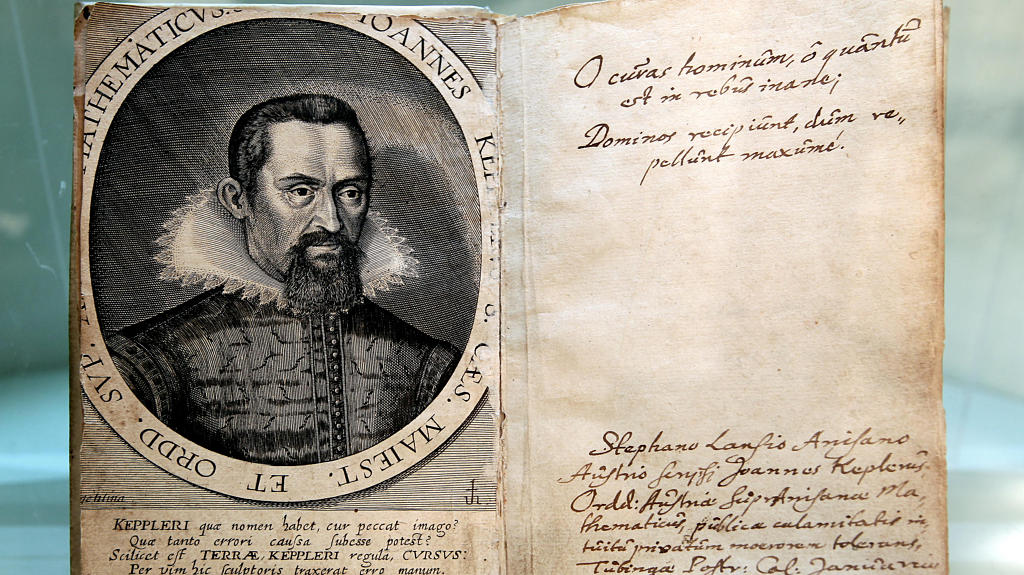 MATHEMATICVS.
IOANNES KEP
C. CÆS. MAIEST. ET ORDD. SVP.
KEPPLERI quæ nomen habet, cur peccat imago?
Quæ tanto errori caussa subesse potest?
Scilicet est, TERRÆ, KEPPLERI regula, CVRSVS:
Per vim hic sculptoris traxerat erro manum.
O curas hominum, ô quantũ
est in rebus inane;
Dominos recipiunt, dum re„
pellunt maxumé.
Stephano Lansio Anisano
Austrio scripsi Joannes Keplerus
Ordd: Austriæ SuprAnisanæ Ma,
thematicus, publicæ calamitatis in,
tuitu privatum moerorem tolerans,
Tubingæ Postr: Cal: Januarii